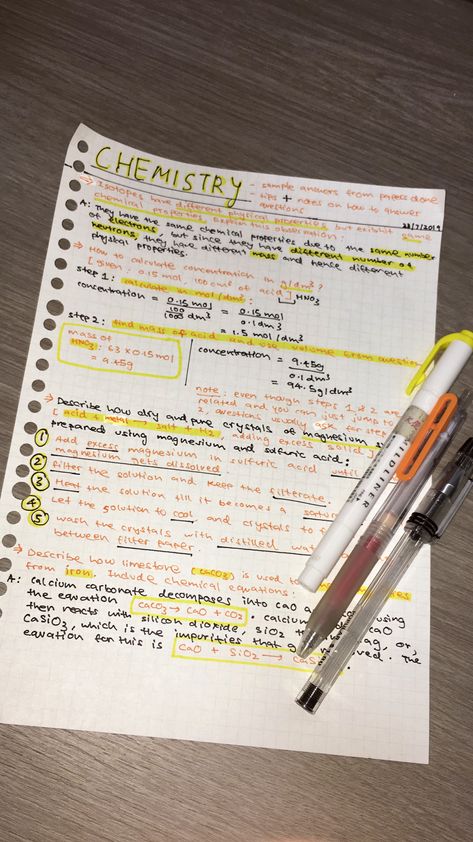 CHEMISTRY
- sample answers from papers done
tips + notes on how to answer
questions
28/7/2019
⇒ Isotopes have different physical properties, but exhibit same
chemical properties. Explain this observation:
A: They have the same chemical properties due to the same number
of electrons, but since they have different number of
neutrons, they have different mass and hence different
physical properties.
⇒ How to calculate concentration in g/dm³?
[given: 0.15 mol, 100 cm³ of acid] HNO3
step 1: calculate in mol/dm³:
concentration = 0.15 mol / 100/1000 dm³ = 0.15 mol / 0.1 dm³
= 1.5 mol/dm³
step 2: find mass of acid and use volume from question
mass of
HNO3: 63 x 0.15 mol
= 9.45g
concentration = 9.45g / 0.1 dm³
= 94.5g/dm³
note: even though steps 1 & 2 are
related and you can just jump to
2, questions usually ask for step
⇒ Describe how dry and pure crystals of magnesium
[acid + metal → salt + H2, adding excess solid]
prepared using magnesium and sulfuric acid:
① Add excess magnesium sulfuric acid until
magnesium gets dissolved
② Filter the solution and keep the filterate.
③ Heat the solution till it becomes a
④ Let the solution to cool and crystals to
⑤ wash the crystals with distilled
between filter paper.
⇒ Describe how limestone (CaCO3) is used to
from iron. Include chemical equations.
A: Calcium carbonate decomposes into CaO
the equation CaCO3 → CaO + CO2. calcium using
then reacts with silicon dioxide, SiO2 CaO
CaSiO3, which is the impurities that or,
equation for this is CaO + SiO2 → The